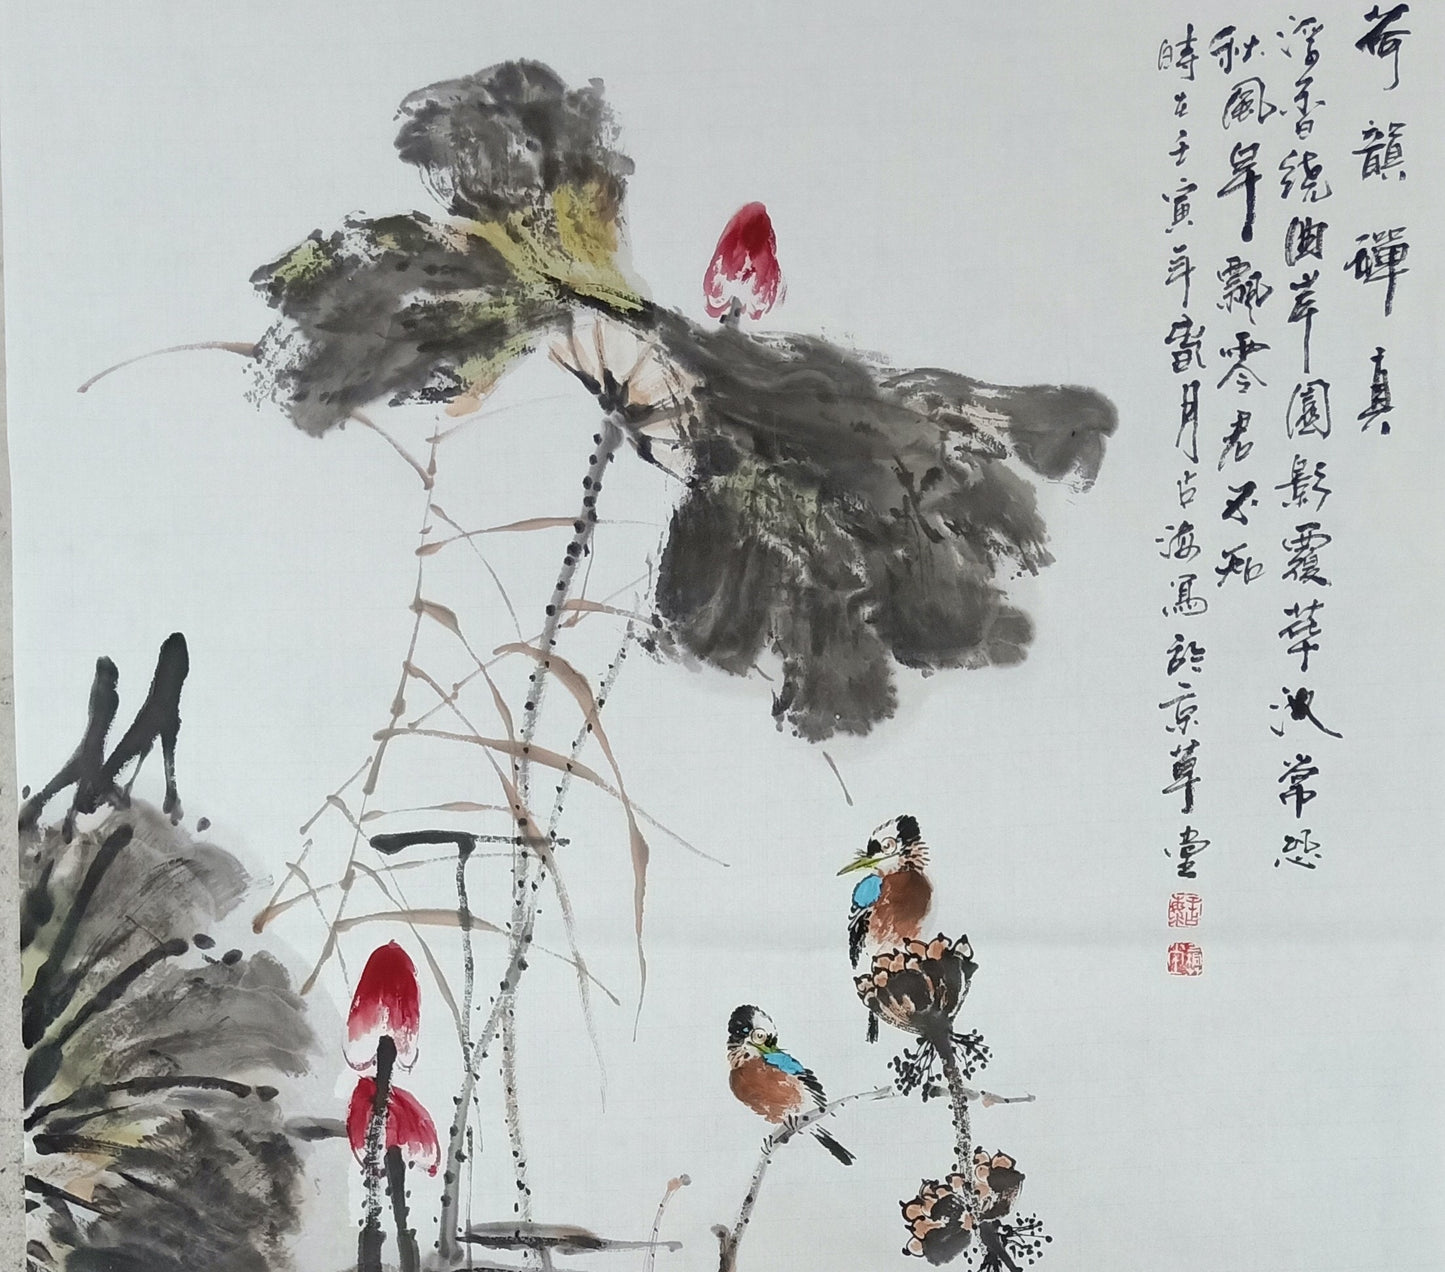 荷韻禪真
浮香繞曲岸圓影覆華池常恐
秋風早飄零君不知
時在壬寅年歲月占海寫於京草堂